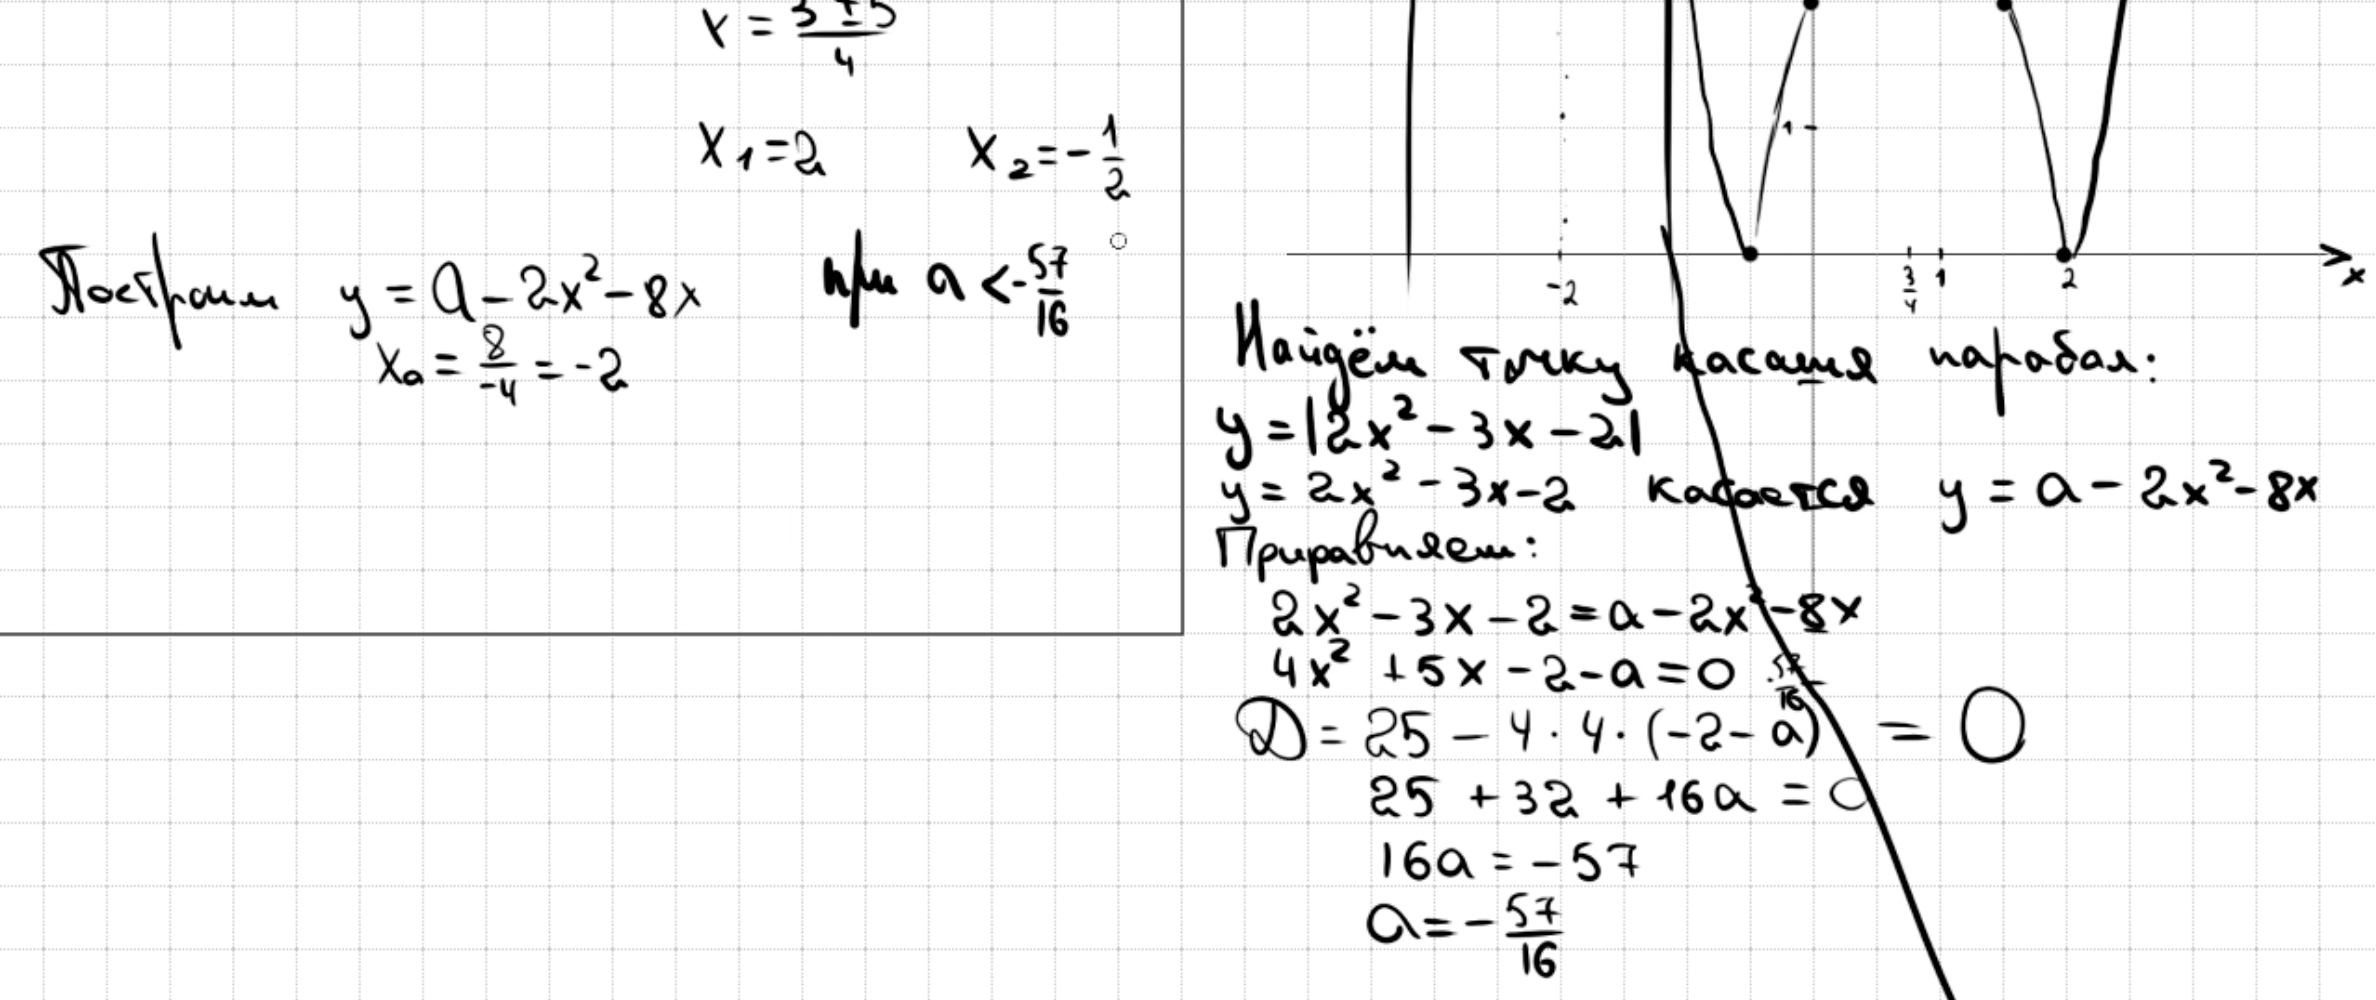 x = (3 ± 5)/4
x₁ = 2 x₂ = -1/2
Построим y = a - 2x² - 8x при a < -57/16
xₐ = 8/-4 = -2
1
-2 3/4 1 2 x
Найдём точку касания парабол:
y = |2x² - 3x - 2|
y = 2x² - 3x - 2 касается y = a - 2x² - 8x
Приравняем:
2x² - 3x - 2 = a - 2x² - 8x
4x² + 5x - 2 - a = 0
-57/16
D = 25 - 4 · 4 · (-2 - a) = 0
25 + 32 + 16a = 0
16a = -57
a = -57/16